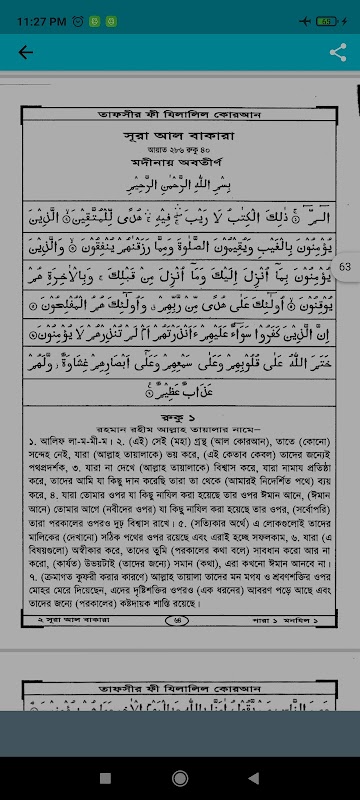 11:27 PM
63
তাফসীর ফী যিলালিল কোরআন
সূরা আল বাকারা
আয়াত ২৮৬ রুকু ৪০
মদীনায় অবতীর্ণ
بِسْمِ اللهِ الرَّحْمٰنِ الرَّحِيْمِ
الٓـمّٓ ۚ ذٰلِكَ الْكِتٰبُ لَا رَيْبَ ۛ فِيْهِ ۛ هُدًى لِّلْمُتَّقِيْنَ ۙ الَّذِيْنَ
يُؤْمِنُوْنَ بِالْغَيْبِ وَيُقِيْمُوْنَ الصَّلٰوةَ وَمِمَّا رَزَقْنٰهُمْ يُنْفِقُوْنَ ۙ وَالَّذِيْنَ
يُؤْمِنُوْنَ بِمَآ اُنْزِلَ اِلَيْكَ وَمَآ اُنْزِلَ مِنْ قَبْلِكَ ۚ وَبِالْاٰخِرَةِ هُمْ
يُوْقِنُوْنَ ۙ اُولٰٓئِكَ عَلٰى هُدًى مِّنْ رَّبِّهِمْ ۙ وَاُولٰٓئِكَ هُمُ الْمُفْلِحُوْنَ ۞
اِنَّ الَّذِيْنَ كَفَرُوْا سَوَآءٌ عَلَيْهِمْ ءَاَنْذَرْتَهُمْ اَمْ لَمْ تُنْذِرْهُمْ لَا يُؤْمِنُوْنَ ۞
خَتَمَ اللهُ عَلٰى قُلُوْبِهِمْ وَعَلٰى سَمْعِهِمْ وَعَلٰٓى اَبْصَارِهِمْ غِشَاوَةٌ ۙ وَّلَهُمْ
عَذَابٌ عَظِيْمٌ ۞
রুকু ১
রহমান রহীম আল্লাহ তায়ালার নামে–
১. আলিফ লা-ম-মী-ম। ২. (এই) সেই (মহা) গ্রন্থ (আল কোরআন), তাতে (কোনো)
সন্দেহ নেই, যারা (আল্লাহ তায়ালাকে) ভয় করে, (এই কেতাব কেবল) তাদের জন্যেই
পথপ্রদর্শক, ৩. যারা না দেখে (আল্লাহ তায়ালাকে) বিশ্বাস করে, যারা নামায প্রতিষ্ঠা
করে, তাদের আমি যা কিছু দান করেছি তারা তা থেকে (আমারই নির্দেশিত পথে) ব্যয়
করে, ৪. যারা তোমার ওপর যা কিছু নাযিল করা হয়েছে তার ওপর ঈমান আনে, (ঈমান
আনে) তোমার আগে (নবীদের ওপর) যা কিছু নাযিল করা হয়েছে তার ওপর, (সর্বোপরি)
তারা পরকালের ওপরও দৃঢ় বিশ্বাস রাখে। ৫. (সত্যিকার অর্থে) এ লোকগুলোই তাদের
মালিকের (দেখানো) সঠিক পথের ওপর রয়েছে এবং এরাই হচ্ছে সফলকাম, ৬. যারা (এ
বিষয়গুলো) অস্বীকার করে, তাদের তুমি (পরকালের কথা বলে) সাবধান করো আর না
করো, (কার্যত) উভয়টাই (তাদের জন্যে) সমান (কথা), এরা কখনো ঈমান আনবে না।
৭. (ক্রমাগত কুফরী করার কারণে) আল্লাহ তায়ালা তাদের মন মগয ও শ্রবণশক্তির ওপর
মোহর মেরে দিয়েছেন, এদের দৃষ্টিশক্তির ওপরও (এক ধরনের) আবরণ পড়ে আছে এবং
তাদের জন্যে (পরকালের) কষ্টদায়ক শাস্তি রয়েছে।
২ সূরা আল বাকারা
পারা ১ মনযিল ১
তাফসীর ফী যিলালিল কোরআন